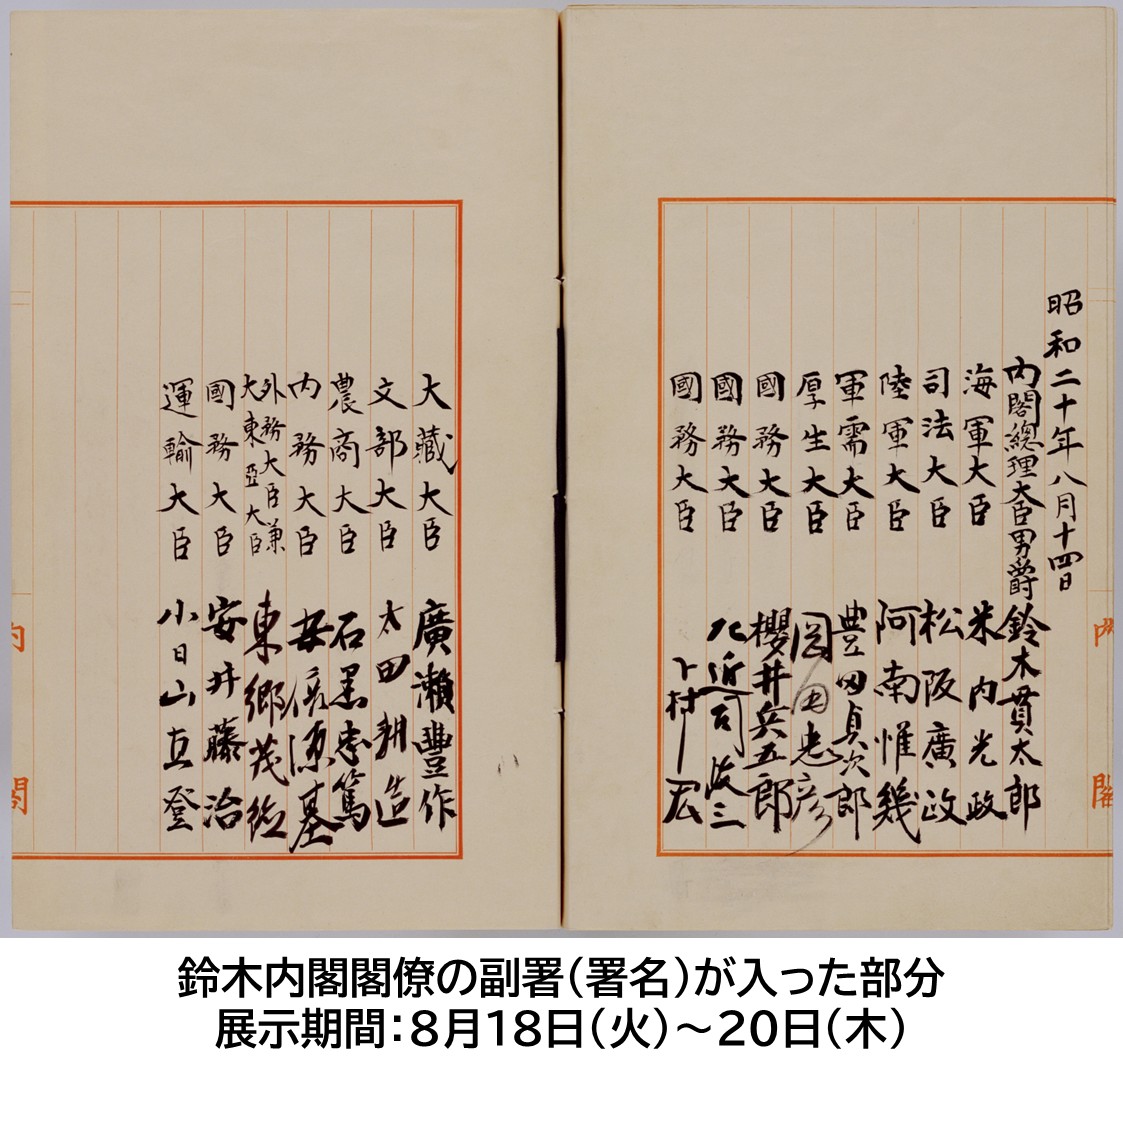 昭和二十年八月十四日
内閣總理大臣男爵 鈴木貫太郎
海軍大臣 米内光政
司法大臣 松阪廣政
陸軍大臣 阿南惟幾
軍需大臣 豊田貞次郎
厚生大臣 岡田忠彦
國務大臣 櫻井兵五郎
國務大臣 左近司政三
國務大臣 下村宏
大藏大臣 廣瀬豐作
文部大臣 太田耕造
農商大臣 石黒忠篤
内務大臣 安倍源基
外務大臣兼
大東亞大臣 東郷茂徳
國務大臣 安井藤治
運輸大臣 小日山直登
内閣
内閣
鈴木内閣閣僚の副署（署名）が入った部分
展示期間：8月18日（火）～20日（木）